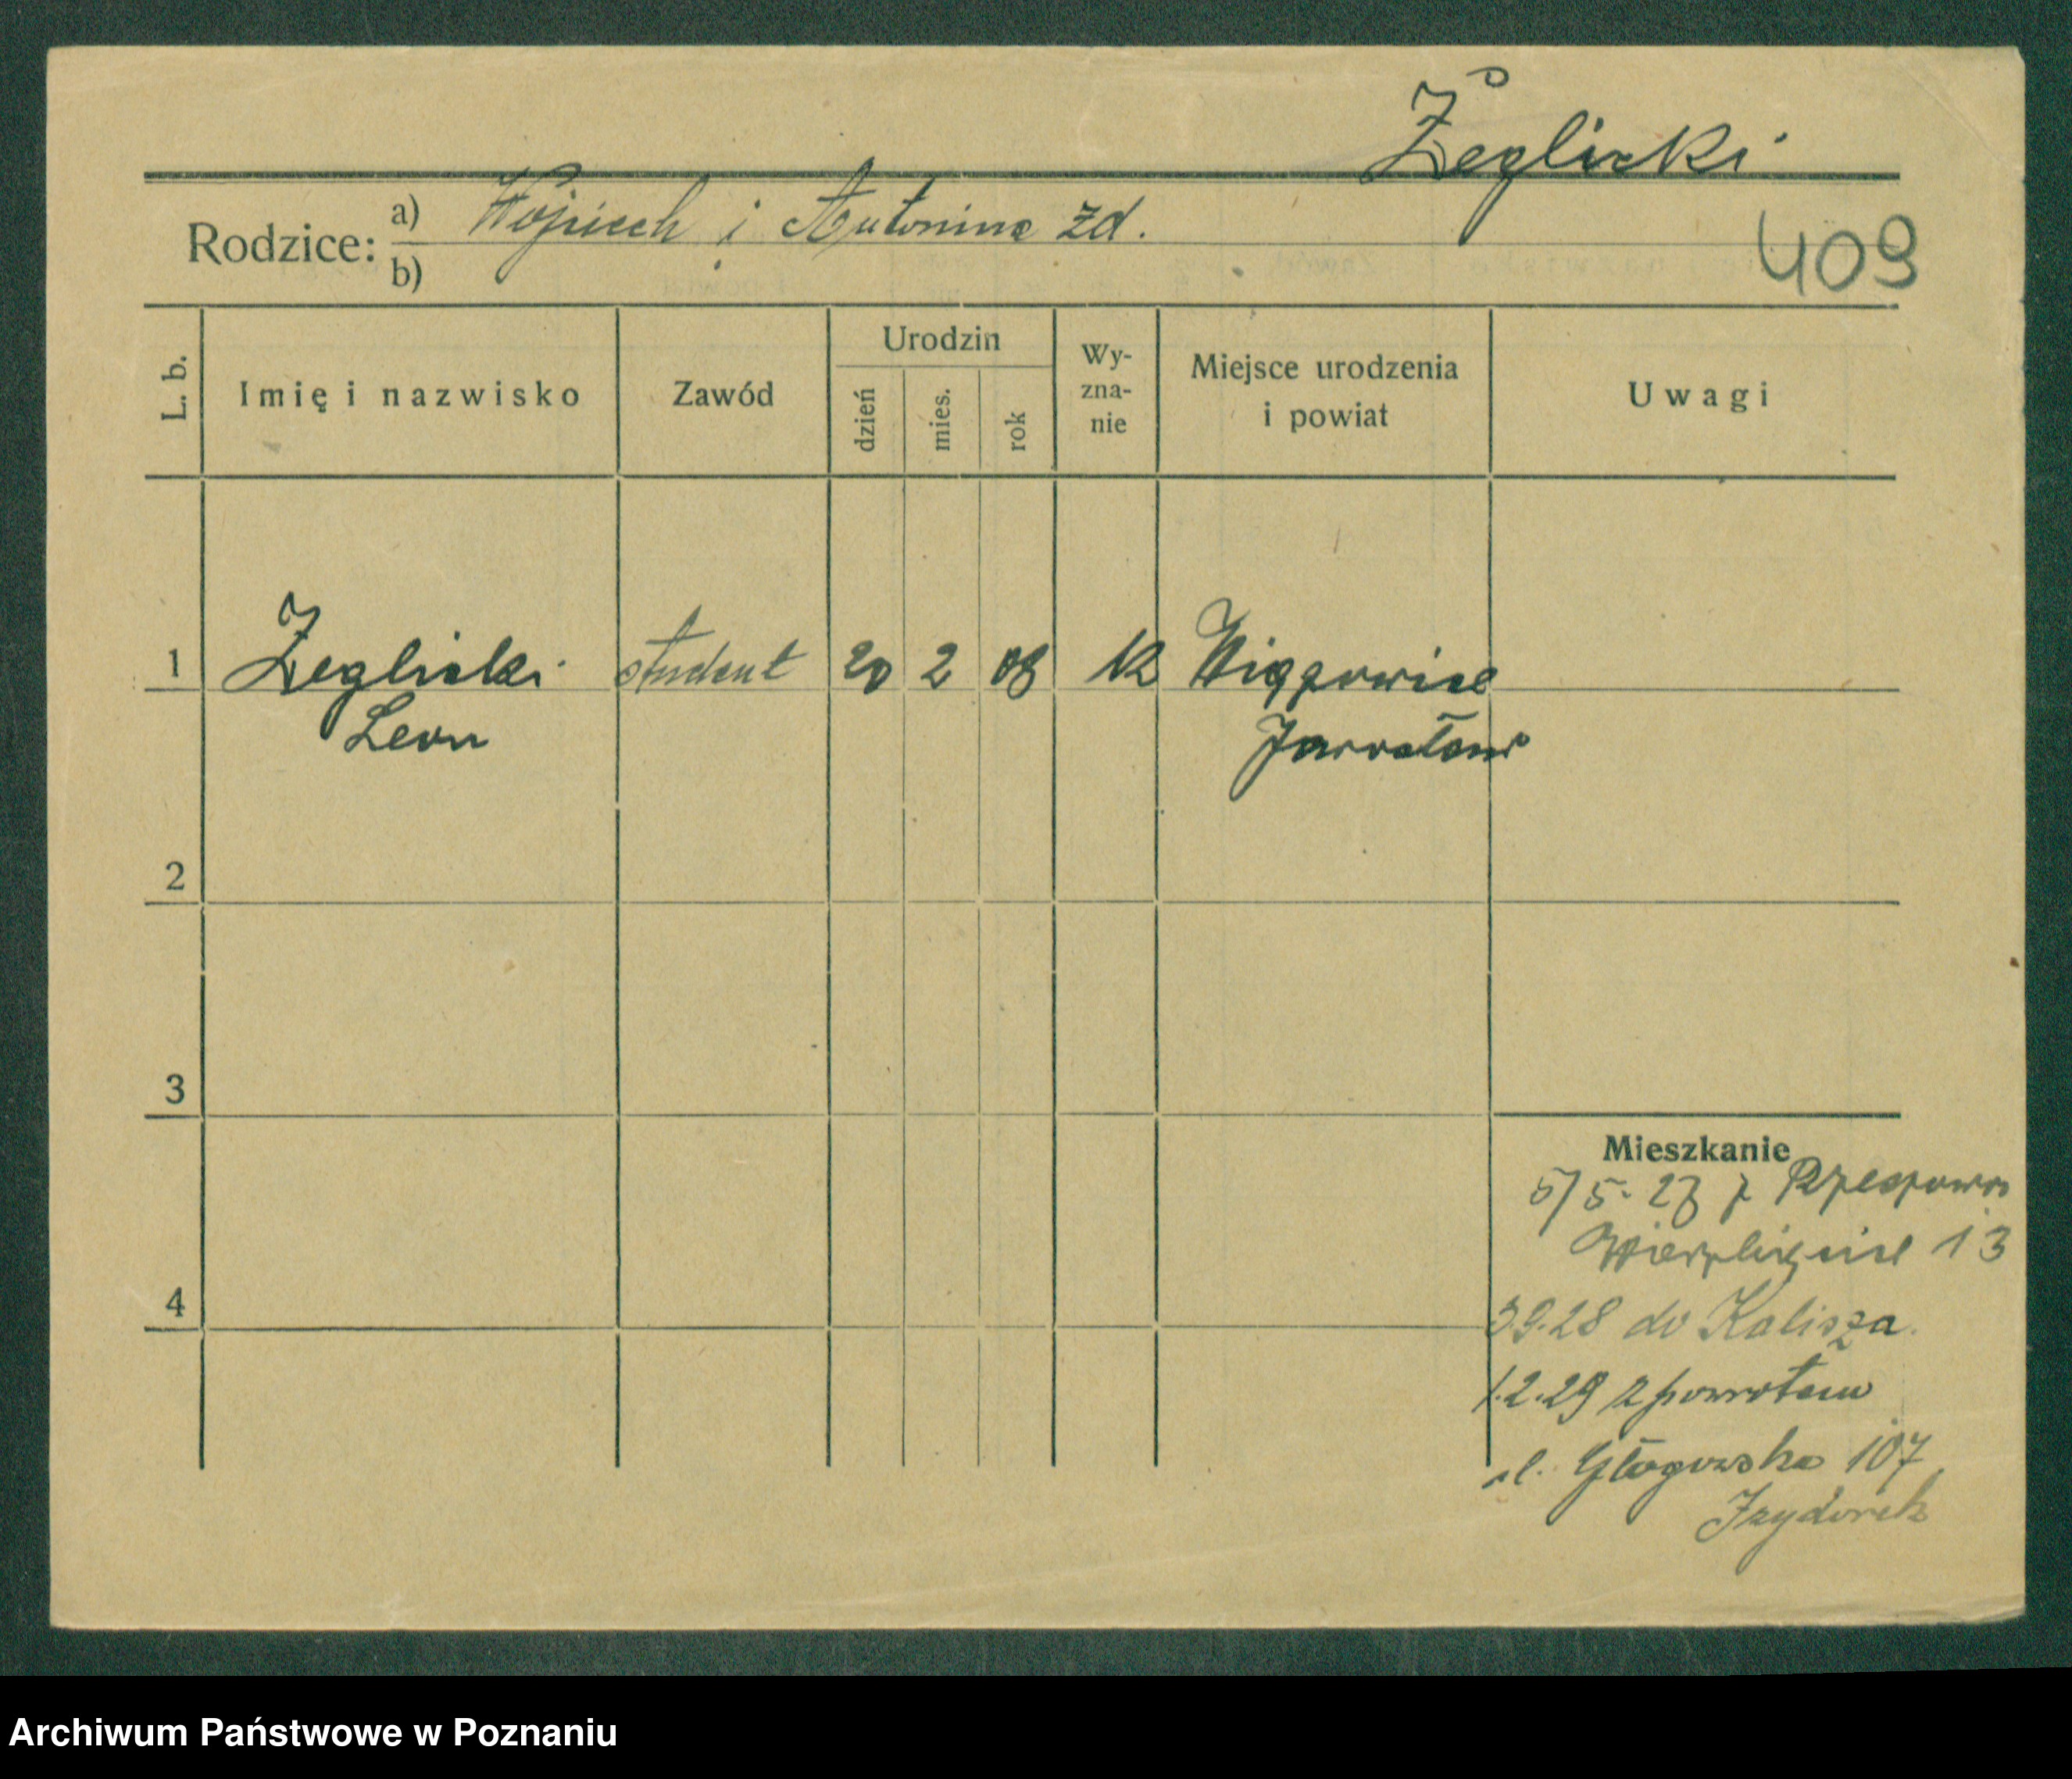 Żeglicki
Rodzice: a) Wojciech i Antonina zd.
b)
409
L. b. Imię i nazwisko Zawód Urodzin dzień mies. rok Wy-zna-nie Miejsce urodzenia i powiat Uwagi
1 Żeglicki student 20 2 08 k
Leon Jarosław
2
3
4
Mieszkanie
5/5. 28 z Rzeszowa
Wierzbięcice 13
3.9.28 do Kalisza.
1.2.29 z powrotem
ul. Głogowska 107
Izydorek
Archiwum Państwowe w Poznaniu